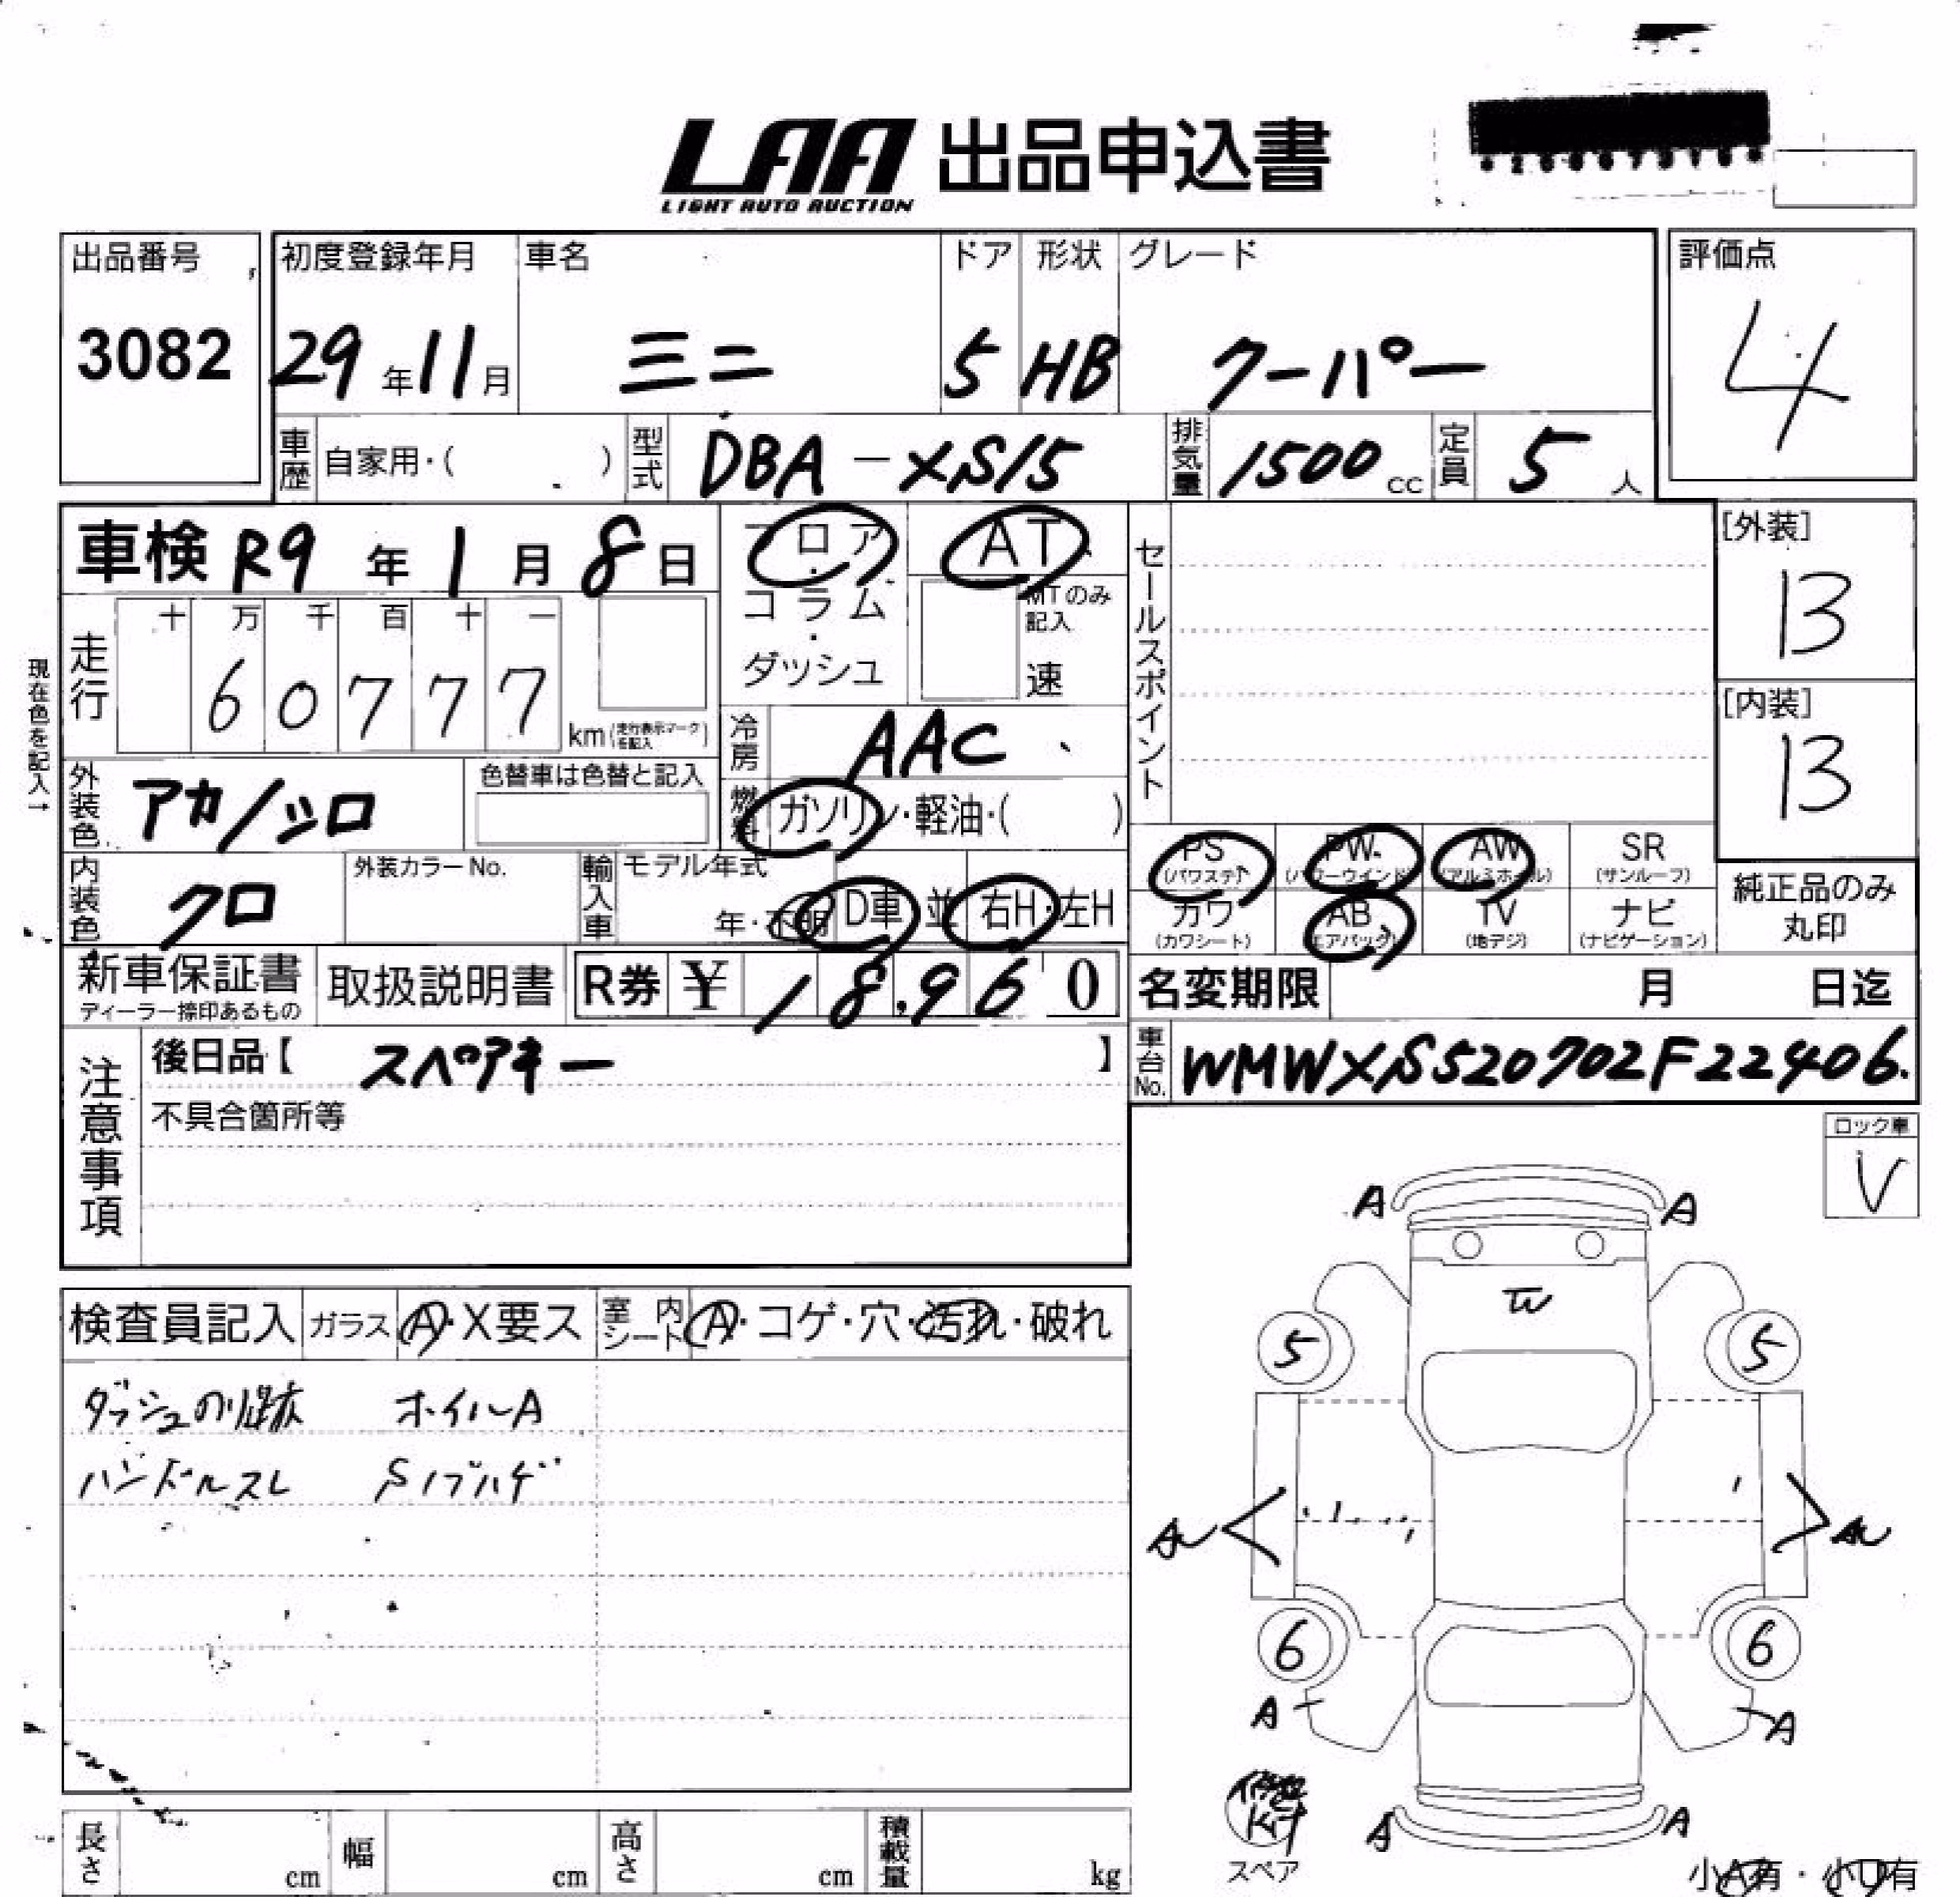 LAA 出品申込書
LIGHT AUTO AUCTION
出品番号 初度登録年月 車名 ドア 形状 グレード 評価点
3082 29年11月 ミニ 5 HB クーパー 4
車歴 自家用・( ) 型式 DBA-XS15 排気量 1500cc 定員 5人
車検 R9年1月8日 フロア・コラム・ダッシュ AT
MTのみ記入 速
セールスポイント
[外装]
13
[内装]
13
現在色を記入→
走行 十 万 千 百 十 一
6 0 7 7 7
km(走行表示マークを記入)
冷房 AAC
外装色 アカ/シロ 色替車は色替と記入
燃料 ガソリン・軽油・( )
内装色 クロ 外装カラーNo. 輸入車 モデル年式 年・不明 D車 並 右H・左H
PS (パワステ) PW (パワーウインド) AW (アルミホイール) SR (サンルーフ)
カワ (カワシート) AB (エアバック) TV (地デジ) ナビ (ナビゲーション)
純正品のみ
丸印
新車保証書 取扱説明書 R券 ¥ 18,960 名変期限 月 日迄
ディーラー捺印あるもの
注意事項 後日品【 スペアキー 】 車台No. WMWXS520702F22406
不具合箇所等
ロック車
V
A A
検査員記入 ガラス A・X要ス 室内シート A・コゲ・穴・汚れ・破れ
ダッシュのり跡 ホイルA
ハンドルスレ Sノブハゲ
5 5
6 6
A A
修理
Kit
スペア
A A
長さ cm 幅 cm 高さ cm 積載量 kg
小A有・小U有